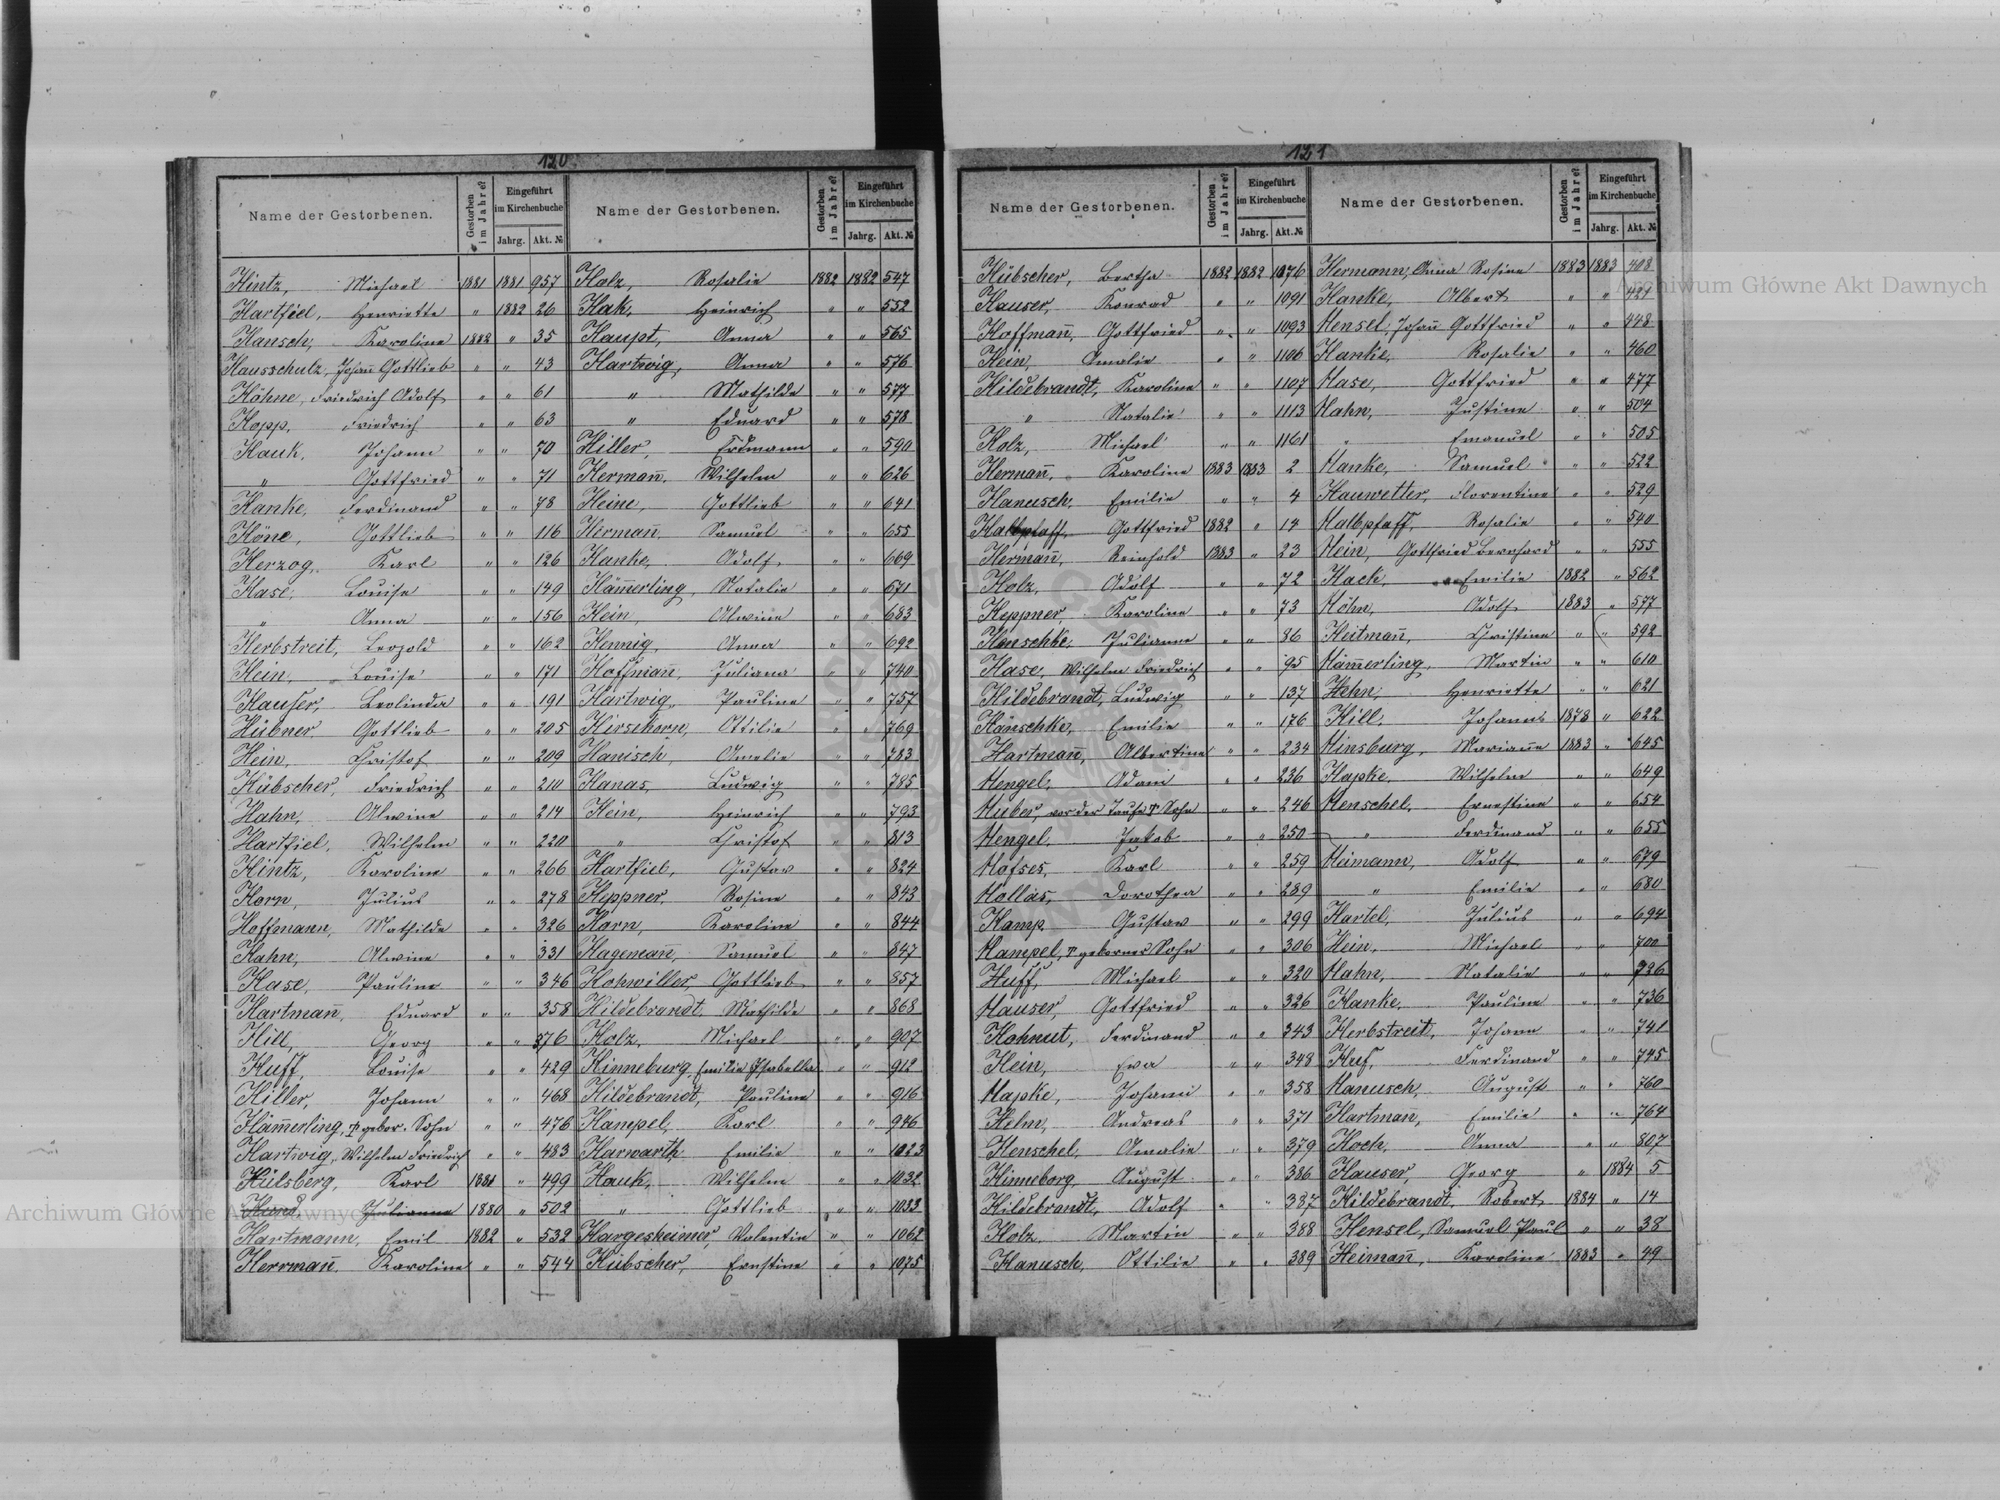 120
Name der Gestorbenen. Gestorben im Jahre? Eingeführt im Kirchenbuche Jahrg. Akt. № Name der Gestorbenen. Gestorben im Jahre? Eingeführt im Kirchenbuche Jahrg. Akt. №
Hintz, Michael 1881 1881 957
Hartfiel, Henriette " 1882 26
Hansch, Karoline 1882 " 35
Hausschulz, Johañ Gottlieb " " 43
Höhne, Friedrich Adolf " " 61
Hopp, Friedrich " " 63
Hauk, Johann " " 70
" Gottfried " " 71
Hanke, Ferdinand " " 78
Höne, Gottlieb " " 116
Herzog, Karl " " 126
Hase, Louise " " 149
" Anna " " 156
Herbstreit, Leopold " " 162
Hein, Louise " " 171
Hauser, Leolinda " " 191
Hübner Gottlieb " " 205
Hein, Christof " " 209
Hübscher, Friedrich " " 210
Hahn, Alwine " " 214
Hartfiel, Wilhelm " " 220
Hintz, Karoline " " 266
Horn, Julius " " 278
Hoffmann, Mathilde " " 326
Hahn, Alwine " " 331
Hase, Pauline " " 346
Hartmañ, Eduard " " 358
Hill, Georg " " 376
Huff, Louise " " 429
Hiller, Johann " " 468
Häm̄erling, gebor. Sohn " " 476
Hartwig, Wilhelm Friedrich " " 483
Hülsberg, Karl 1881 " 499
Julianna 1880 " 502
Hartmann, Emil 1882 " 532
Herrmañ, Karoline " " 544
Holz, Rosalie 1882 1882 547
Hak, Heinrich " " 552
Haupt, Anna " " 565
Hartwig, Anna " " 576
" Mathilde " " 577
" Eduard " " 578
Hiller, Erdmann " " 590
Hermañ, Wilhelm " " 626
Heine, Gottlieb " " 641
Hermañ, Samuel " " 655
Hanke, Adolf " " 669
Häm̄erling, Natalie " " 671
Hein, Alwine " " 683
Hennig, Anna " " 692
Hoffmañ, Juliana " " 740
Hartwig, Pauline " " 757
Hirsekorn, Ottilie " " 769
Hanisch, Amalie " " 783
Hanas, Ludwig " " 785
Hein, Heinrich " " 793
" Christof " " 813
Hartfiel, Gustav " " 824
Heppner, Rosine " " 843
Horn, Karoline " " 844
Hagemañ, Samuel " " 847
Hohwiller, Gottlieb " " 857
Hildebrandt, Mathilde " " 868
Holz, Michael " " 907
Hinneburg, Emilie Isabella " " 912
Hildebrandt, Pauline " " 916
Hampel, Karl " " 946
Harwarth, Emilie " " 1023
Hauk, Wilhelm " " 1032
" Gottlieb " " 1033
Hargesheimer, Valentin " " 1062
Hübscher, Ernstine " " 1075
121
Name der Gestorbenen. Gestorben im Jahre? Eingeführt im Kirchenbuche Jahrg. Akt. № Name der Gestorbenen. Gestorben im Jahre? Eingeführt im Kirchenbuche Jahrg. Akt. №
Hübscher, Bertha 1882 1882 1076
Hauser, Konrad " " 1091
Hoffmañ, Gottfried " " 1093
Hein, Amalie " " 1106
Hildebrandt, Karoline " " 1107
" Natalie " " 1113
Holz, Michael " " 1161
Hermañ, Karoline 1883 1883 2
Hanusch, Emilie " " 4
Halbpfaff, Gottfried 1882 " 14
Hermañ, Reinhold 1883 " 23
Holz, Adolf " " 72
Heppner, Karoline " " 73
Henschke, Julianne " " 86
Hase, Wilhelm Friedrich " " 95
Hildebrandt, Ludwig " " 137
Hänschke, Emilie " " 176
Hartmañ, Albertine " " 234
Hengel, Adam " " 236
Huber, vor der Taufe † Sohn " " 246
Hengel, Jakob " " 250
Hofses, Karl " " 259
Hollas, Dorothea " " 289
Hamp, Gustav " " 299
Hampel, geborner Sohn " " 306
Huff, Michael " " 320
Hauser, Gottfried " " 326
Hohnut, Ferdinand " " 343
Hein, Eva " " 348
Hapke, Johann " " 358
Helm, Andreas " " 371
Henschel, Amalie " " 379
Hinneborg, August " " 386
Hildebrandt, Adolf " " 387
Holz, Martin " " 388
Hanusch, Ottilie " " 389
Hermann, Anna Rosine 1883 1883 408
Hanke, Albert " " 421
Hensel, Johañ Gottfried " " 448
Hanke, Rosalie " " 460
Hase, Gottfried " " 477
Hahn, Justine " " 504
" Emanuel " " 505
Hanke, Samuel " " 522
Hauwetter, Florentine " " 529
Halbpfaff, Rosalie " " 540
Hein, Gottfried Bernhard " " 555
Hack, Emilie 1882 " 562
Höhn, Adolf 1883 " 577
Heitmañ, Christine " " 592
Häm̄erling, Martin " " 610
Hahn, Henriette " " 621
Hill, Johanna 1878 " 622
Hinsburg, Mariañe 1883 " 645
Hapke, Wilhelm " " 649
Henschel, Ernestine " " 654
" Ferdinand " " 655
Heimann, Adolf " " 679
" Emilie " " 680
Hartel, Julius " " 694
Hein, Michael " " 700
Hahn, Natalie " " 726
Hanke, Pauline " " 736
Herbstreit, Johann " " 741
Huf, Ferdinand " " 745
Hanusch, August " " 760
Hartmañ, Emilie " " 764
Hoch, Anna " " 807
Hauser, Georg " 1884 5
Hildebrandt, Robert 1884 " 14
Hensel, Samuel Paul " " 38
Heimañ, Karoline 1883 " 49
Archiwum Główne Akt Dawnych
Archiwum Główne Akt Dawnych